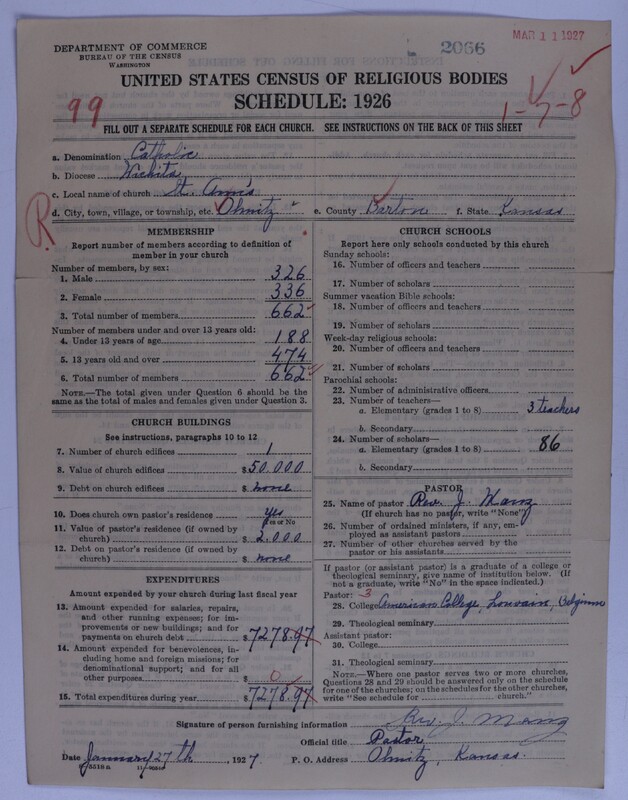 MAR 11 1927
2066
DEPARTMENT OF COMMERCE
BUREAU OF THE CENSUS
WASHINGTON
UNITED STATES CENSUS OF RELIGIOUS BODIES
SCHEDULE: 1926
99
1-7-8
FILL OUT A SEPARATE SCHEDULE FOR EACH CHURCH. SEE INSTRUCTIONS ON THE BACK OF THIS SHEET
a. Denomination Catholic
b. Diocese Wichita
c. Local name of church St. Ann's
d. City, town, village, or township, etc. Olmitz e. County Barton f. State Kansas
R
MEMBERSHIP
Report number of members according to definition of
member in your church
Number of members, by sex:
1. Male 326
2. Female 336
3. Total number of members 662
Number of members under and over 13 years old:
4. Under 13 years of age 188
5. 13 years old and over 474
6. Total number of members 662
NOTE.—The total given under Question 6 should be
same as the total of males and females given under Question 3.
CHURCH BUILDINGS
See instructions, paragraphs 10 to 12
7. Number of church edifices 1
8. Value of church edifices $50.000
9. Debt on church edifices $ none
10. Does church own pastor's residence yes
Yes or No
11. Value of pastor's residence (if owned by
church) $ 2.000
12. Debt on pastor's residence (if owned by
church) $ none
EXPENDITURES
Amount expended by your church during last fiscal year
13. Amount expended for salaries, repairs,
and other running expenses; for im-
provements or new buildings; and for
payments on church debt $7278.97
14. Amount expended for benevolences, in-
cluding home and foreign missions; for
denominational support; and for all
other purposes $ 0
15. Total expenditures during year $7278.97
CHURCH SCHOOLS
Report here only schools conducted by this church
Sunday schools:
16. Number of officers and teachers
17. Number of scholars
Summer vacation Bible schools:
18. Number of officers and teachers
19. Number of scholars
Week-day religious schools:
20. Number of officers and teachers
21. Number of scholars
Parochial schools:
22. Number of administrative officers
23. Number of teachers—
a. Elementary (grades 1 to 8) 3 teachers
b. Secondary
24. Number of scholars—
a. Elementary (grades 1 to 8) 86
b. Secondary
PASTOR
25. Name of pastor Rev. J. Mang
(If church has no pastor, write "None")
26. Number of ordained ministers, if any, em-
ployed as assistant pastors
27. Number of other churches served by the
pastor or his assistants
If pastor (or assistant pastor) is a graduate of a college or
theological seminary, give name of institution below. (If
not a graduate, write "No" in the space indicated.)
Pastor: 3
28. College American College, Louvain, Belgium
29. Theological seminary
Assistant pastor:
30. College
31. Theological seminary
NOTE.—Where one pastor serves two or more churches,
Questions 28 and 29 should be answered only on the schedule
for one of the churches; on the schedules for the other churches,
write "See schedule for church."
Signature of person furnishing information Rev. J. Mang
Official title Pastor
Date January 27th, 1927 P. O. Address Olmitz, Kansas.